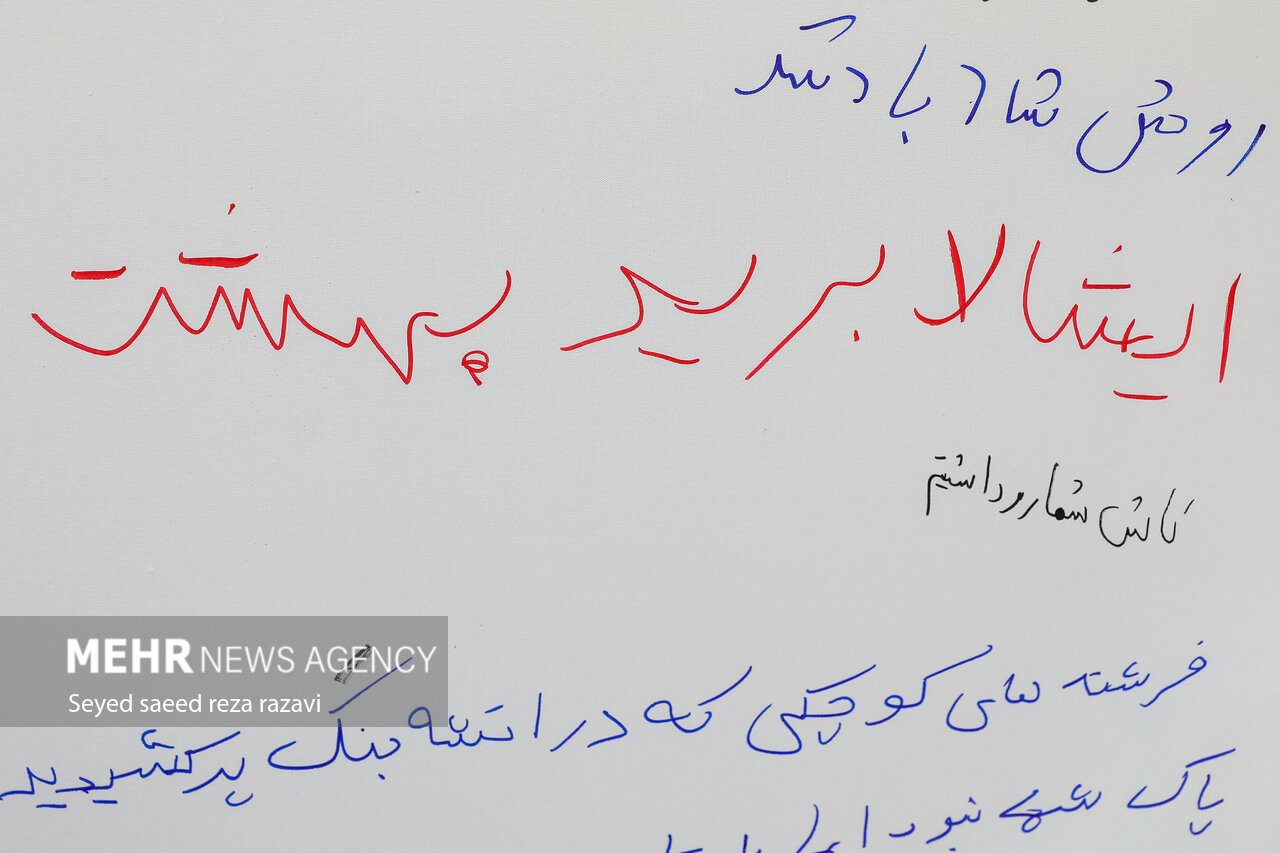 اروحش شاد باد تکد
ایشالا برید بهشت
کاش شمارو داشتیم
MEHR NEWS AGENCY
Seyed saeed reza razavi
فرشته های کوچکی که در اتشه جنگ پر کشیدید
پاک شهی نبود